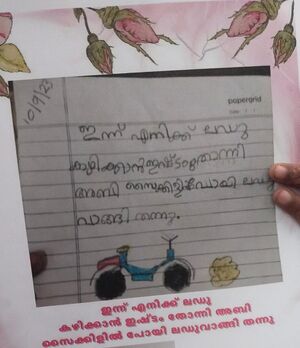 10/9/23
papergrid
Date: / /
ഇന്ന് എനിക്ക് ലഡു
കഴിക്കാൻ ഇഷ്ടം തോന്നി
അബി സൈക്കിളിൽ പോയി ലഡു
വാങ്ങി തന്നു.
ഇന്ന് എനിക്ക് ലഡു
കഴിക്കാൻ ഇഷ്ടം തോന്നി അബി
സൈക്കിളിൽ പോയി ലഡുവാങ്ങി തന്നു